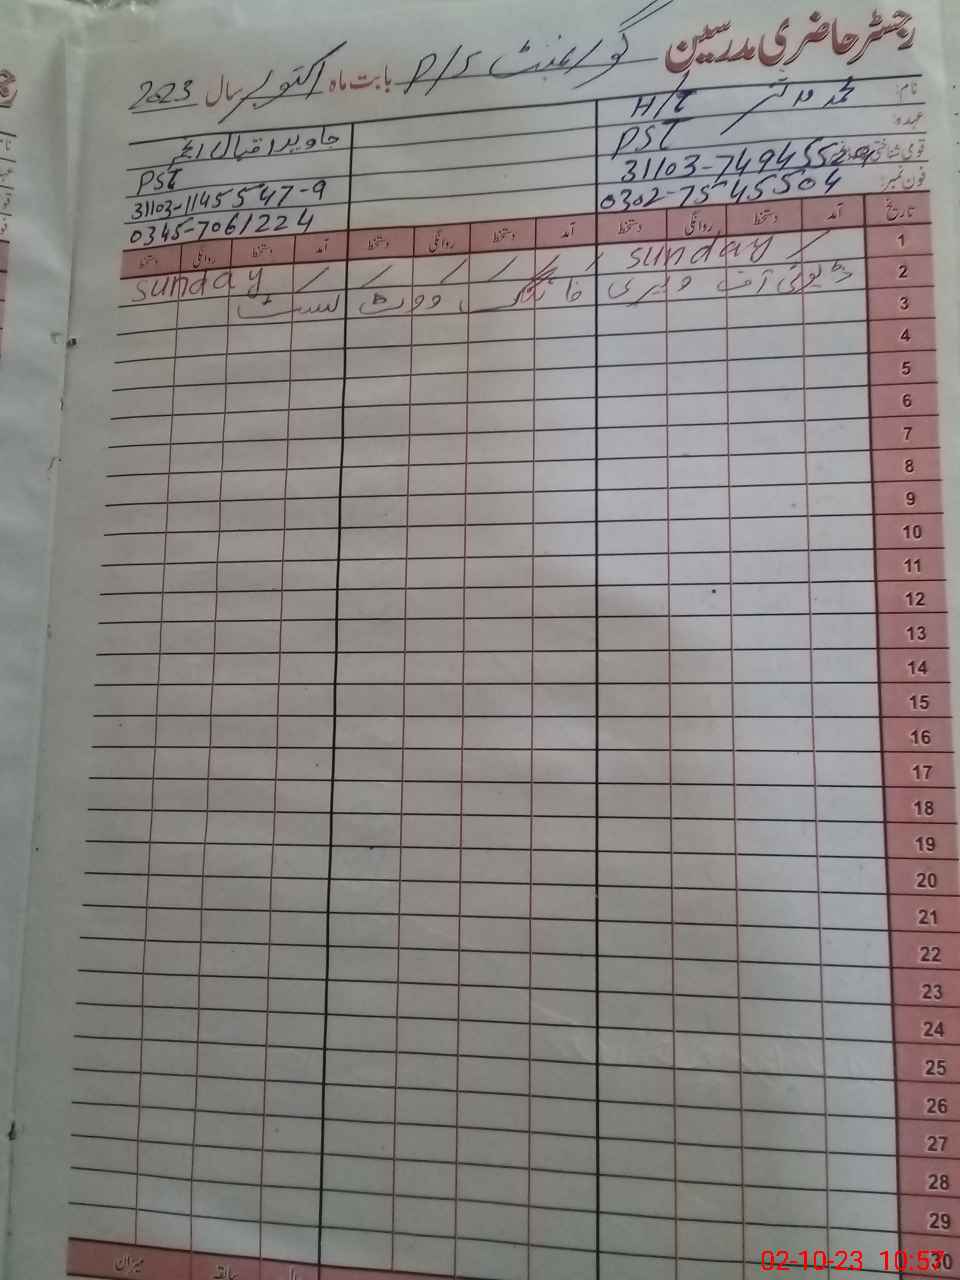 رجسٹر حاضری مدرسین گورنمنٹ P/S بابت ماہ اکتوبر سال 2023
نام:
H/T
جاوید اقبال
عہدہ:
PST
PST
قومی شناختی
31103-7494552-9
31103-1145547-9
فون نمبر:
0302-7545504
0345-7061224
تاریخ آمد دستخط روانگی دستخط آمد دستخط روانگی دستخط آمد دستخط روانگی دستخط
1 sunday sunday
2 ڈیوٹی آف ویری فائنگ ووٹ لسٹ
3
4
5
6
7
8
9
10
11
12
13
14
15
16
17
18
19
20
21
22
23
24
25
26
27
28
29
30
میزان سابقہ
02-10-23 10:57